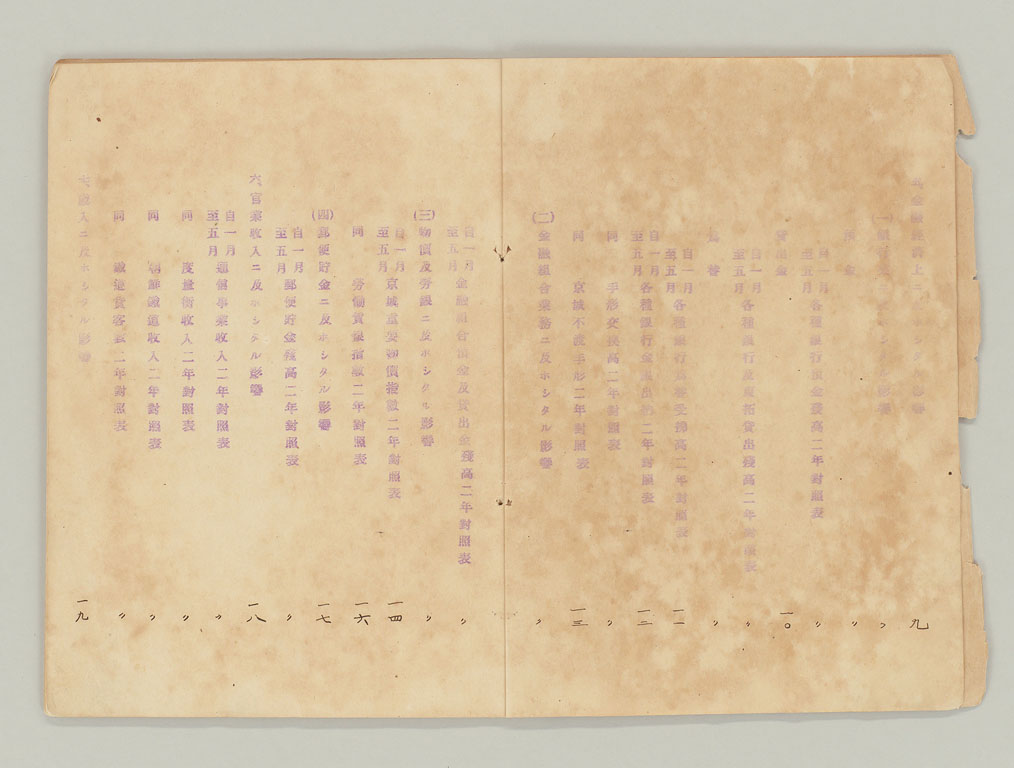 五 金融經濟上ニ シタル影響 九
(一)銀行業ニ シタル影響 〃
預金 〃
自一月至五月 各種銀行預金殘高二年對照表 〃
貸出金 一〇
自一月至五月 各種銀行及東拓貸出殘高二年對照表 〃
爲替 〃
自一月至五月 各種銀行爲替受拂高二年對照表 一一
自一月至五月 各種銀行金 出納二年對照表 一二
同 手形交換高二年對照表 〃
同 京城不渡手形二年對照表 一三
(二)金融組合業務ニ及ホシタル影響 〃
自一月至五月 金融組合預金及貸出金殘高二年對照表 〃
(三)物價及勞銀ニ及ホシタル影響 〃
自一月至五月 京城重要物價指數二年對照表 一四
同 勞働賃銀指數二年對照表 一六
(四)郵便貯金ニ及ホシタル影響 一七
自一月至五月 郵便貯金殘高二年對照表 〃
六 官業收入ニ及ホシタル影響 一八
自一月至五月 遞信事業收入二年對照表 〃
同 度量衡收入二年對照表 〃
同 朝鮮鐵道收入二年對照表 〃
同 鐵道貨客數二年對照表 〃
七 歲入ニ及ホシタル影響 一九